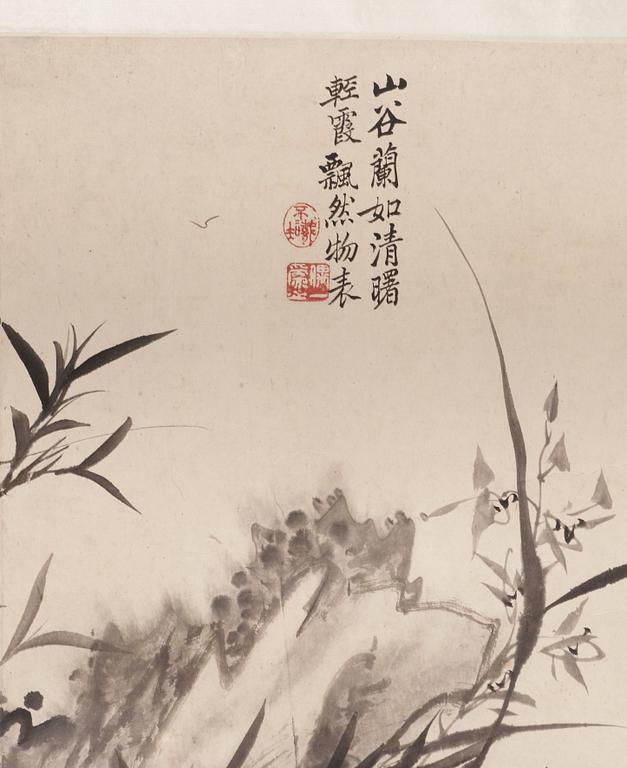 山谷蘭如清曙
輕霞飄然物表